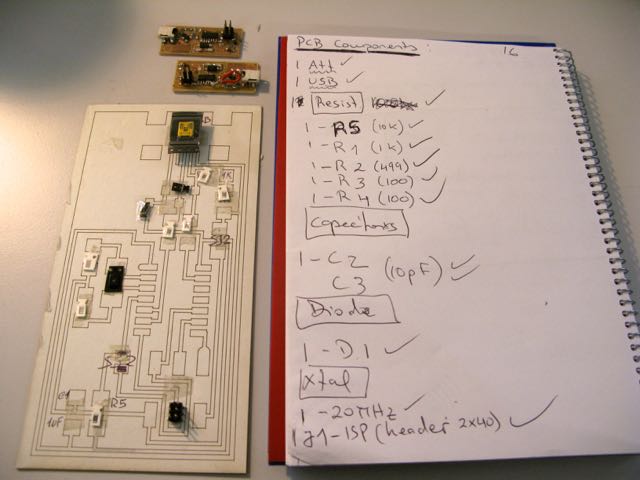 PCB Components:
16
1 Att ✓
1 USB ✓
1 Resist ✓
1-R5 (10k) ✓
1-R1 (1k) ✓
1-R2 (499) ✓
1-R3 (100) ✓
1-R4 (100) ✓
Capacitors
1-C2
C3 (10pF) ✓✓
Diode
1-D1 ✓
Xtal
1-20MHz ✓
1 J1-ISP (header 2x40) ✓
B
1K
R5
C1
1uF